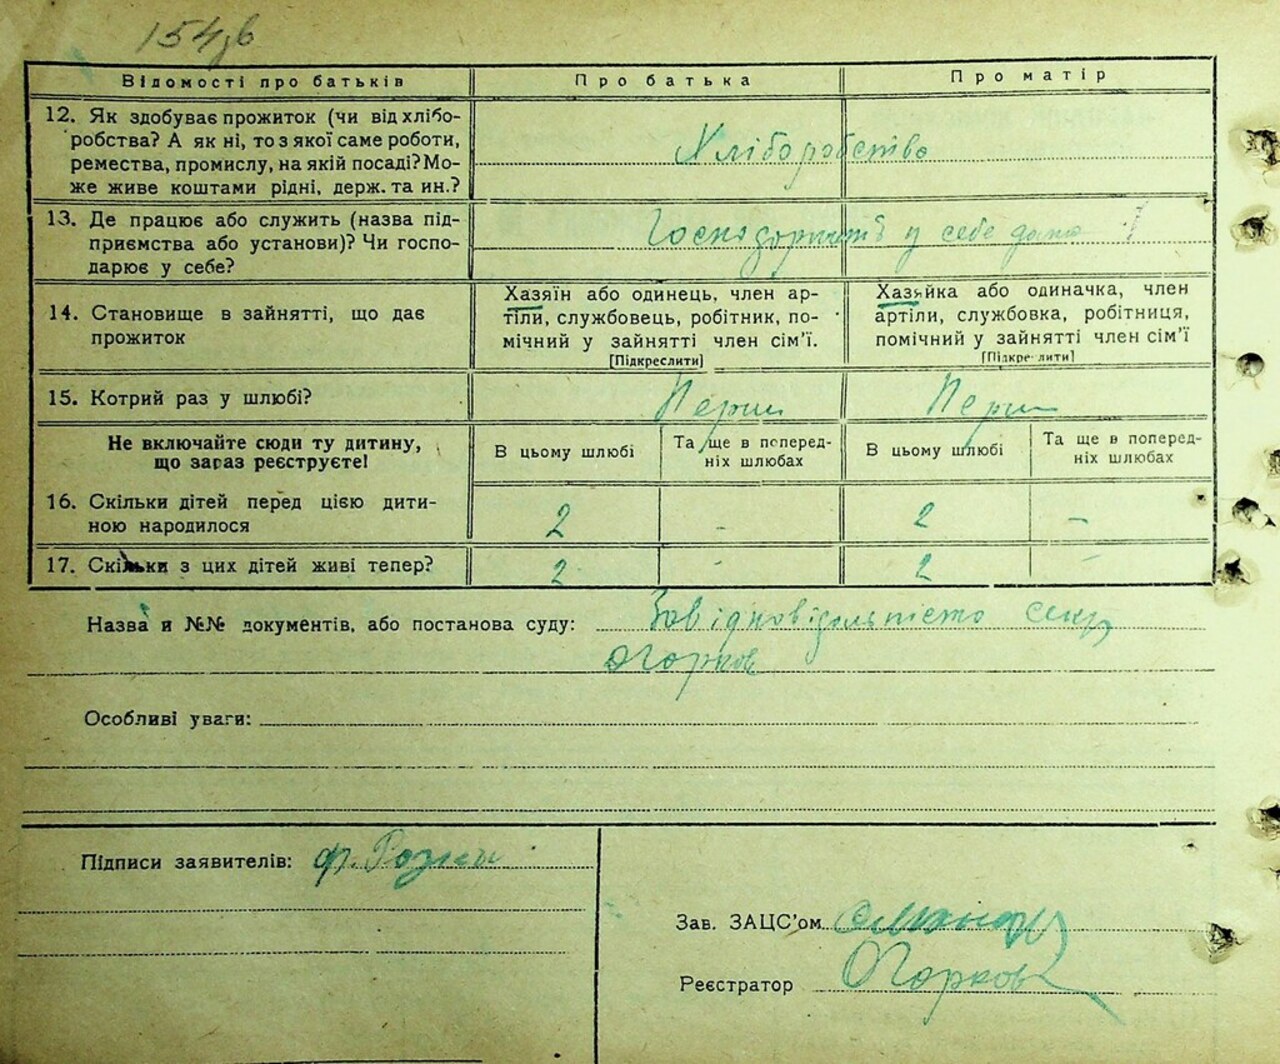 154зв
Відомості про батьків
Про батька
Про матір
12. Як здобуває прожиток (чи від хлібо-
робства? А як ні, то з якої саме роботи,
ремества, промислу, на якій посаді? Мо-
же живе коштами рідні, держ. та ин.?
Хліборобство
13. Де працює або служить (назва під-
приємства або установи)? Чи госпо-
дарює у себе?
у себе дома
14. Становище в зайнятті, що дає
прожиток
Хазяїн або одинець, член ар-
тіли, службовець, робітник, по-
мічний у зайнятті член сім'ї.
[Підкреслити]
Хазяйка або одиначка, член
артіли, службовка, робітниця,
помічний у зайнятті член сім'ї
[Підкреслити]
15. Котрий раз у шлюбі?
Перши
Перши
Не включайте сюди ту дитину,
що зараз реєструєте!
В цьому шлюбі
Та ще в поперед-
ніх шлюбах
В цьому шлюбі
Та ще в поперед-
ніх шлюбах
16. Скільки дітей перед цією дити-
ною народилося
2 - 2 -
17. Скільки з цих дітей живі тепер?
2 - 2 -
Назва и №№ документів, або постанова суду: За відповідальністю секр
Особливі уваги:
Підписи заявителів:
Зав. ЗАЦС'ом
Реєстратор